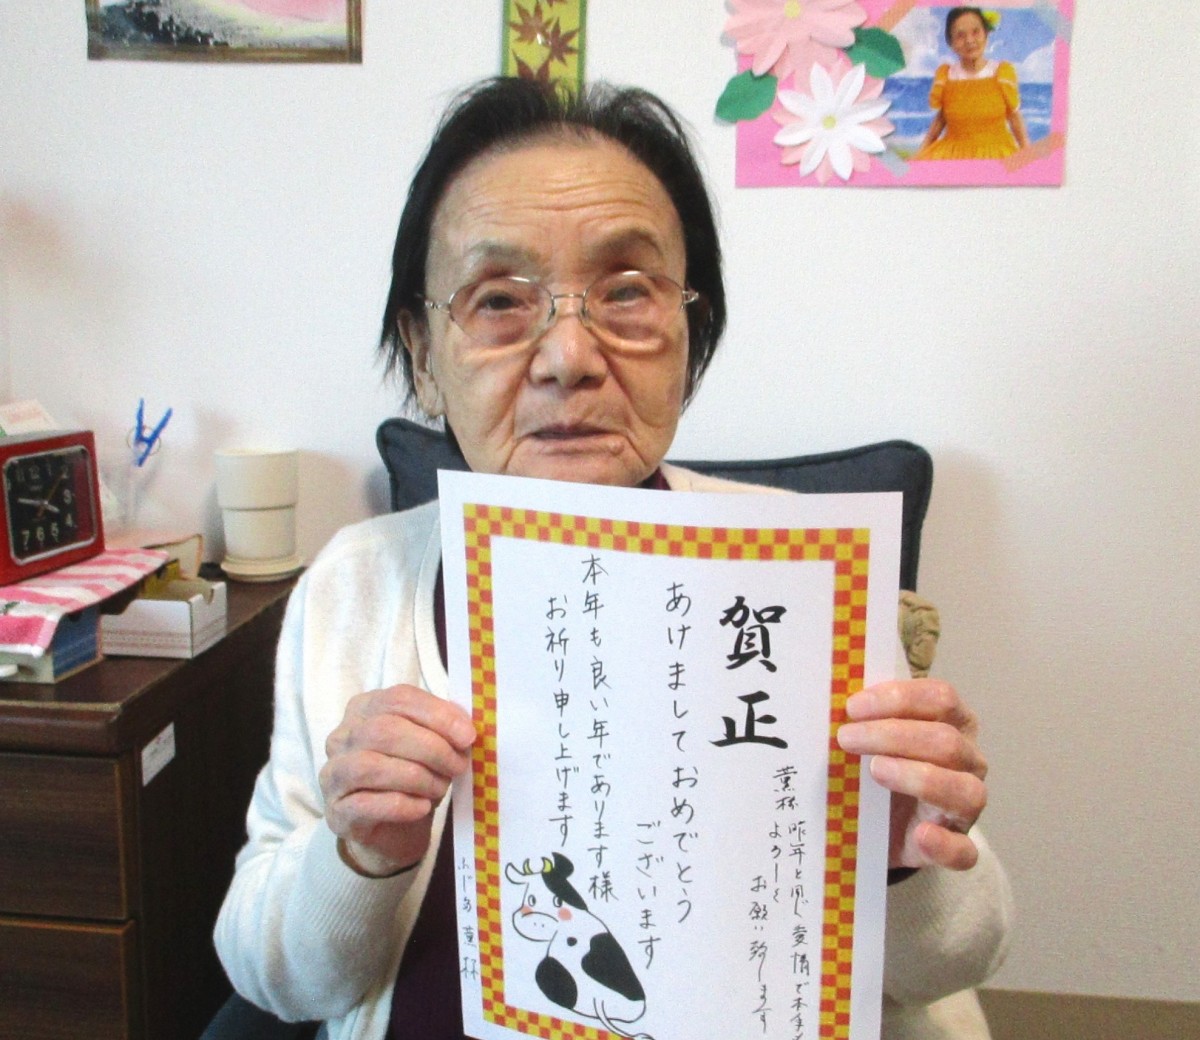 賀正
葉杯
昨年と同じ愛情で本年も
よろしく
お願い致します
あけましておめでとう
ございます
本年も良い年であります様
お祈り申し上げます
12
2
3
4
5
6
7